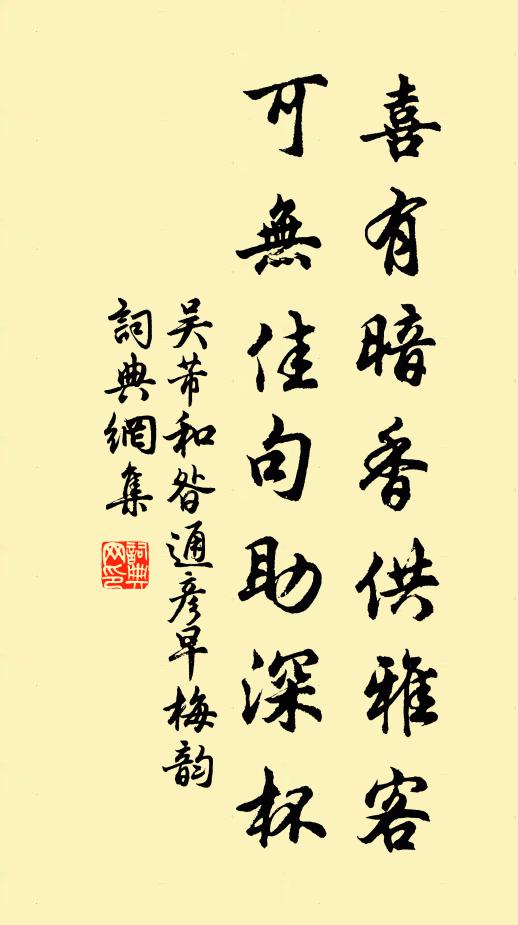 喜有暗香供雅客
可無佳句助深杯
吴芾和昝通彥早梅韵
詞典網集
詞典网印